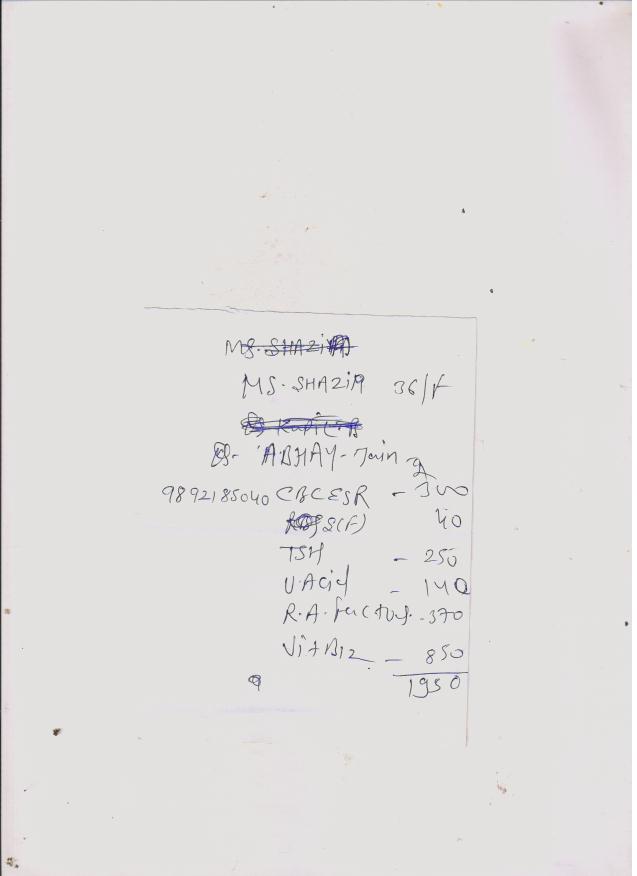 MS. SHAZIA
MS. SHAZIA 36/F
Dr. ABHAY-Jain
9892185040 CBCESR - 300
S(F) 40
TSH - 250
U.Acid - 140
R.A. factor - 370
Vit B12 - 850
1950